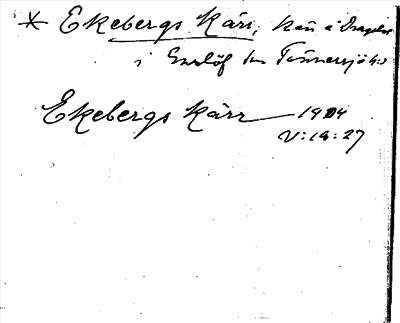 * Ekebergs Kärr, kärr å
i Enslöf sn Tönnersjö hd
Ekebergs Kärr 1904
V:19:27